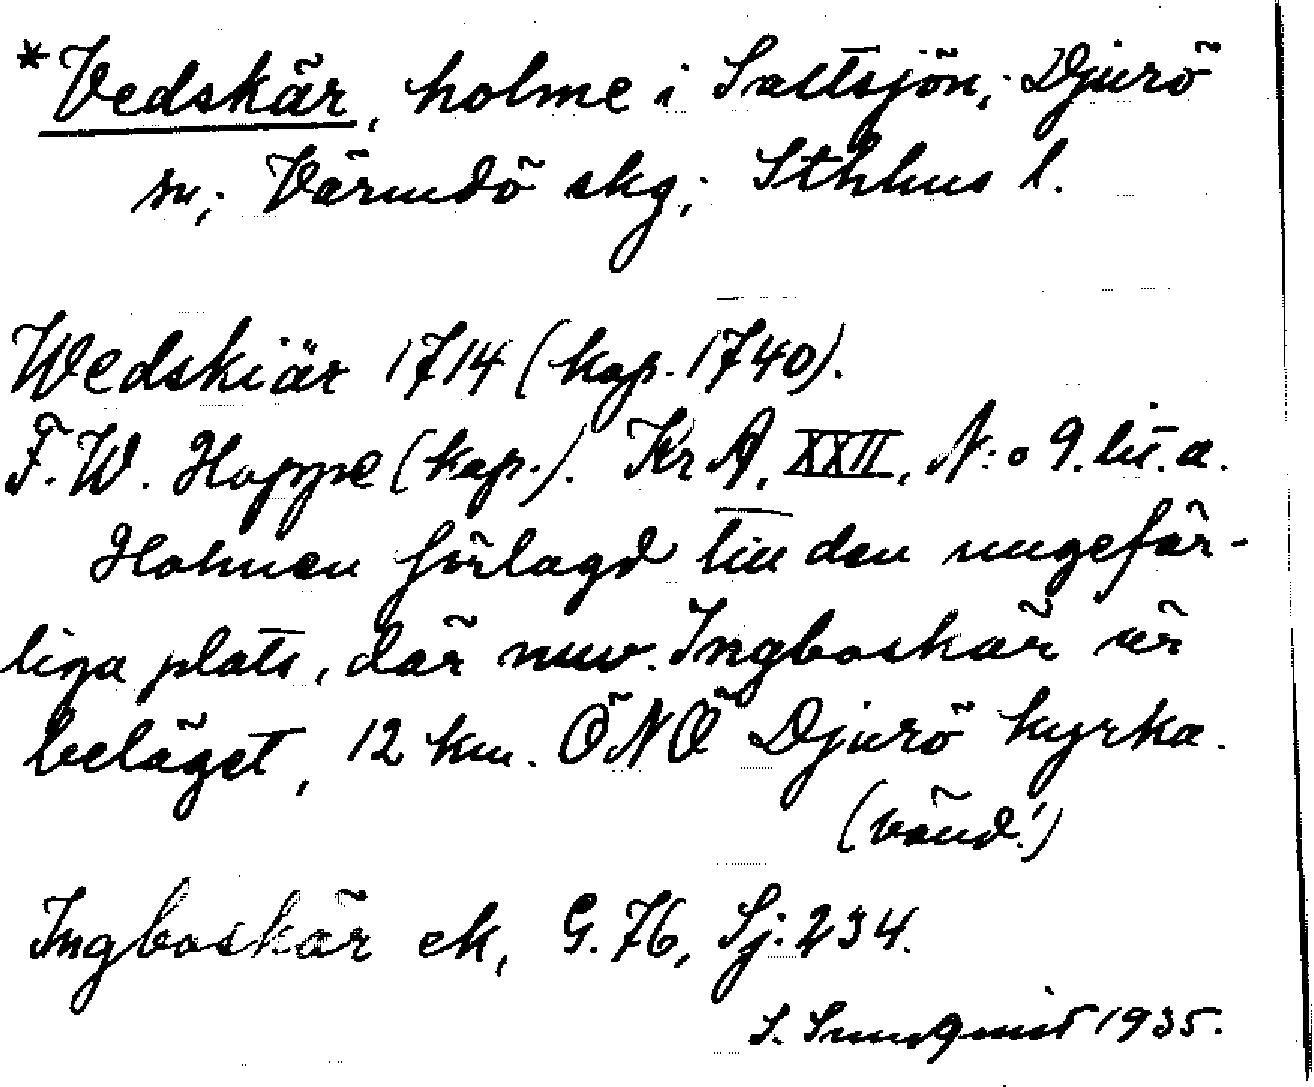 *Vedskär, holme i Saltsjön, Djurö
sn, Värmdö skg, Sthlms l.
Wedskiär 1714 (kop. 1740).
F. W. Hoppe (kop.). KrA, XXII, N:o 9. lit. a.
Holmen förlagd till den ungefär-
liga plats, där nuv. Ingboskär är
beläget, 12 km. ÖNÖ Djurö kyrka.
(vänd!)
Ingboskär ek, G. 76, Sj. 234.
S. Sundqvist 1935.